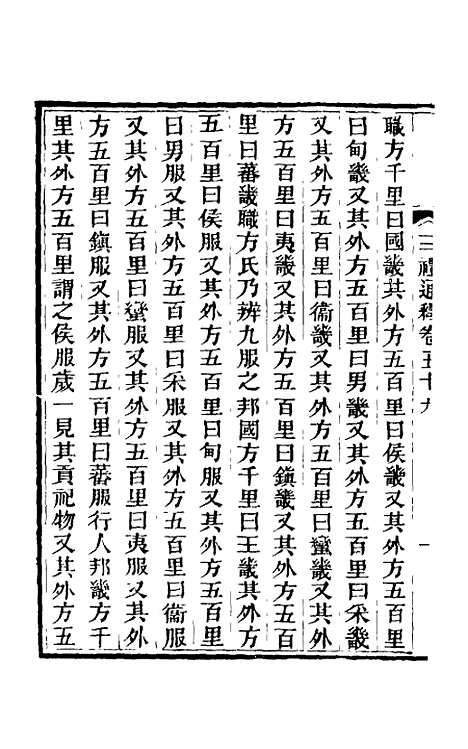 三禮通釋卷五十九
一
職方千里曰國畿其外方五百里曰侯畿又其外方五百里
曰甸畿又其外方五百里曰男畿又其外方五百里曰采畿
又其外方五百里曰衞畿又其外方五百里曰蠻畿又其外
方五百里曰夷畿又其外方五百里曰鎭畿又其外方五百
里曰蕃畿職方氏乃辨九服之邦國方千里曰王畿其外方
五百里曰侯服又其外方五百里曰甸服又其外方五百里
曰男服又其外方五百里曰采服又其外方五百里曰衞服
又其外方五百里曰蠻服又其外方五百里曰夷服又其外
方五百里曰鎭服又其外方五百里曰蕃服行人邦畿方千
里其外方五百里謂之侯服歲一見其貢祀物又其外方五